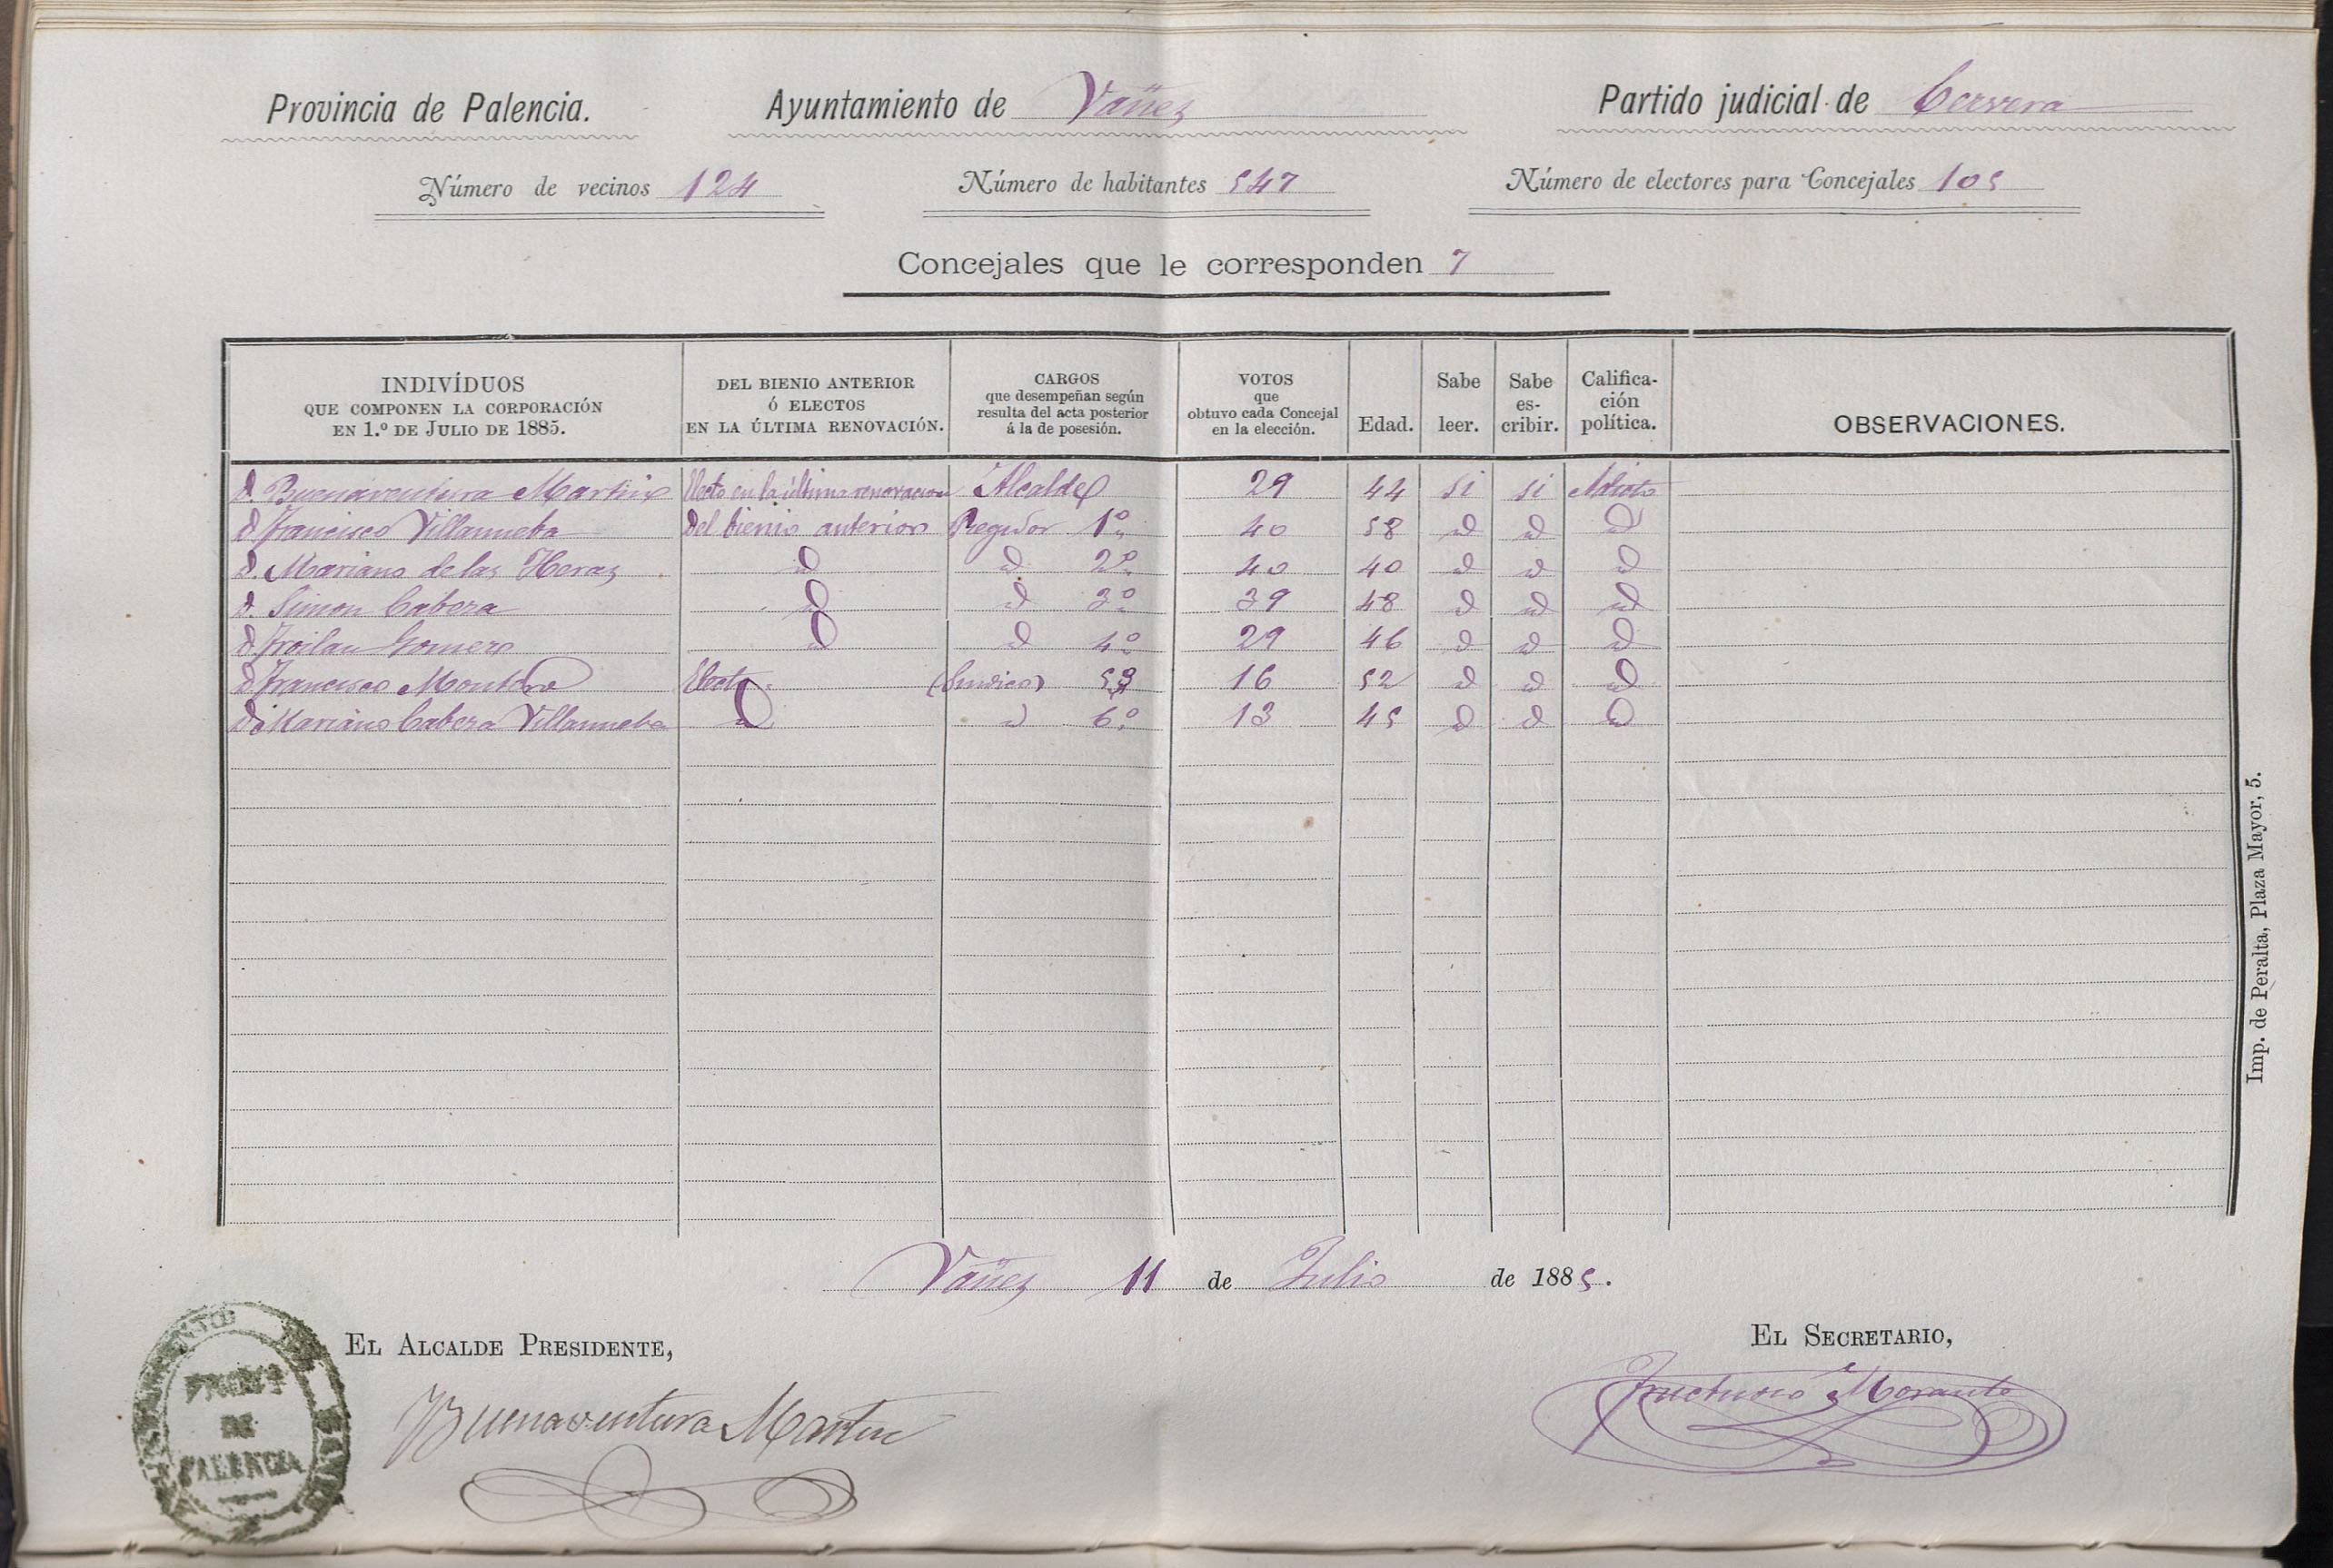 Provincia de Palencia. Ayuntamiento de Vañes Partido judicial de Cervera
Número de vecinos 124 Número de habitantes 547 Número de electores para Concejales 105
Concejales que le corresponden 7
INDIVÍDUOS QUE COMPONEN LA CORPORACIÓN EN 1.º DE JULIO DE 1885. DEL BIENIO ANTERIOR Ó ELECTOS EN LA ÚLTIMA RENOVACIÓN. CARGOS que desempeñan según resulta del acta posterior á la de posesión. VOTOS que obtuvo cada Concejal en la elección. Edad. Sabe leer. Sabe es-cribir. Califica-ción política. OBSERVACIONES.
D. Buenaventura Martin Electo en la última renovacion Alcalde 29 44 Si Si Adicto
D Francisco Villanueba Del bienio anterior Regidor 1º 40 58 id id id
D. Mariano de las Heras id id 2º 40 40 id id id
D. Simon Cabeza id id 3º 39 48 id id id
D Froilan Gomez id id 4º 29 46 id id id
D Francisco Montero Electo (Sindico) 5º 16 52 id id id
D. Mariano Cabeza Villanueba id id 6º 13 45 id id id
Vañes 11 de Julio de 1885.
EL ALCALDE PRESIDENTE, EL SECRETARIO,
Buenaventura Martin Fructuoso Morante
AYUNTAMIENTO
DE
PALENCIA
Imp. de Peralta, Plaza Mayor, 5.